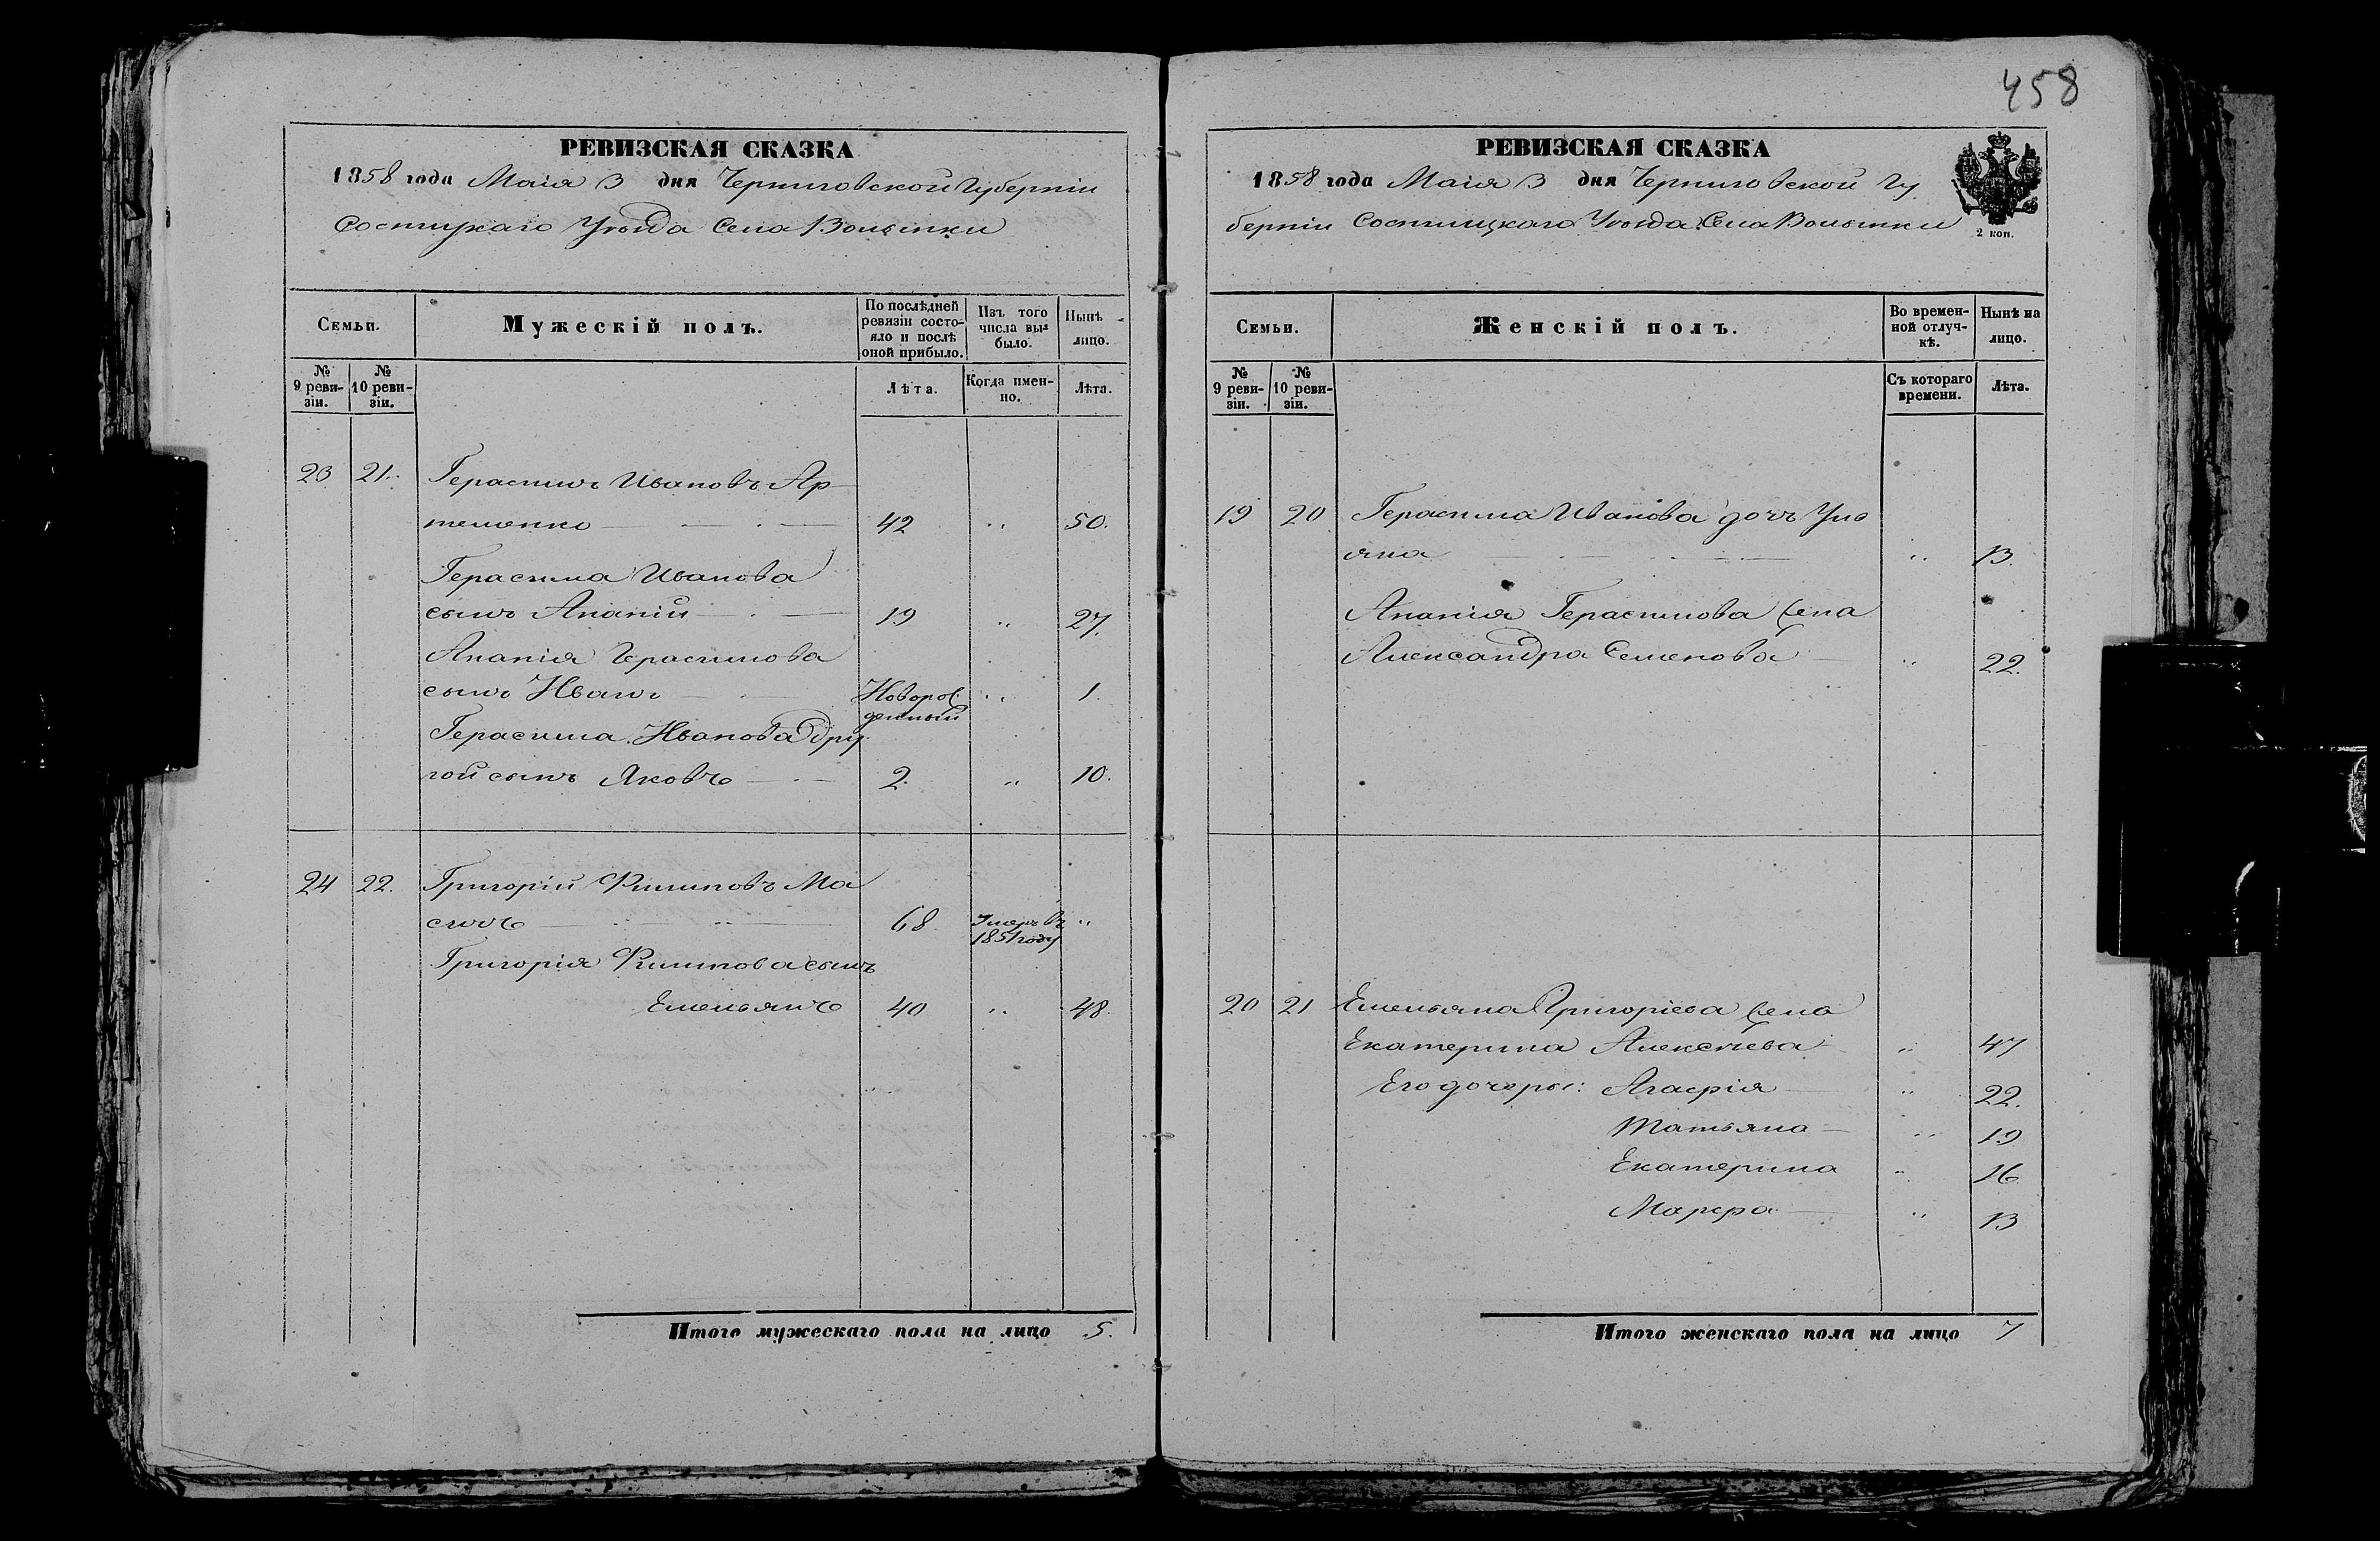 458
РЕВИЗСКАЯ СКАЗКА
1858 года Маія 3 дня Черниговской Губерніи
Сосницкаго Уѣзда Села Волынки
Семьи.
Мужескій полъ.
По послѣдней ревизіи состояло и послѣ оной прибыло.
Изъ того числа выбыло.
Нынѣ на лицо.
№ 9 ревизіи.
№ 10 ревизіи.
Лѣта.
Когда именно.
Лѣта.
23 21. Герасимъ Ивановъ Ар
теменко 42 „ 50.
Герасима Иванова
сынъ Ананій 19 „ 27.
Ананія Герасимова
сынъ Иванъ Новорож „ 1.
денный
Герасима Иванова дру
гой сынъ Яковъ 2. „ 10.
24 22. Григорій Филиповъ Ма
сичъ 68 Умеръ въ „
1851 году
Григорія Филипова сынъ
Емельянъ 40 „ 48.
Итого мужескаго пола на лицо 5.
РЕВИЗСКАЯ СКАЗКА
1858 года Маія 3 дня Черниговской Гу
берніи Сосницкаго Уѣзда Села Волынки
2 коп.
Семьи.
Женскій полъ.
Во временной отлучкѣ.
Нынѣ на лицо.
№ 9 ревизіи.
№ 10 ревизіи.
Съ котораго времени.
Лѣта.
19 20 Герасима Иванова дочь Уль
яна „ 13.
Ананія Герасимова жена
Александра Семенова „ 22.
20 21 Емельяна Григоріева жена
Екатерина Алексѣева „ 47
Его дочеры: Агафія „ 22.
Татьяна „ 19
Екатерина „ 16
Марфа „ 13
Итого женскаго пола на лицо 7